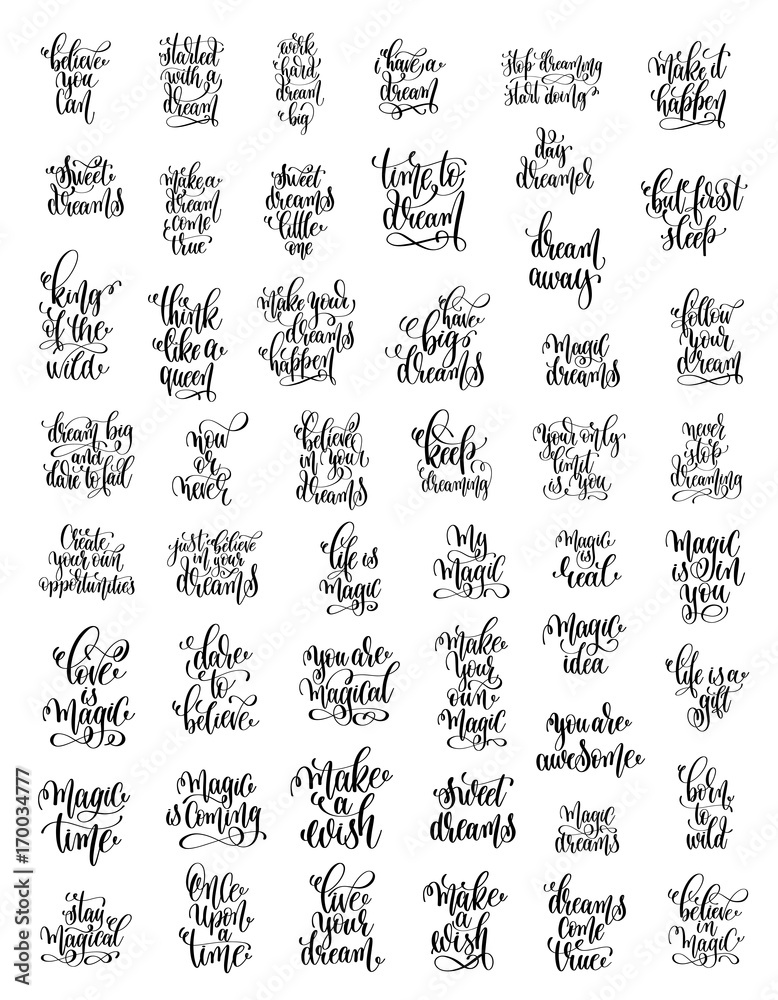 believe
you
can
started
with a
dream
work
hard
dream
big
i have a
dream
stop dreaming
start doing
make it
happen
sweet
dreams
make a
dream
come
true
sweet
dreams
little
one
time to
dream
day
dreamer
but first
sleep
dream
away
king
of the
wild
think
like a
queen
make your
dreams
happen
have
big
dreams
magic
dreams
follow
your
dream
dream big
and
dare to fail
now
or
never
believe
in your
dreams
keep
dreaming
your only
limit
is you
never
stop
dreaming
Create
your own
opportunities
just believe
in your
dreams
life is
magic
My
Magic
Magic
is
real
Magic
is in
you
love
is
Magic
dare
to
believe
you are
Magical
Make
your
own
Magic
Magic
idea
life is a
gift
you are
awesome
Magic
time
Magic
is coming
Make
a
wish
sweet
dreams
Magic
dreams
born
to
wild
stay
Magical
Once
upon
a
time
live
your
dream
Make
a
wish
dreams
come
true
believe
in
Magic
Adobe Stock | #170034777
Adobe Stock